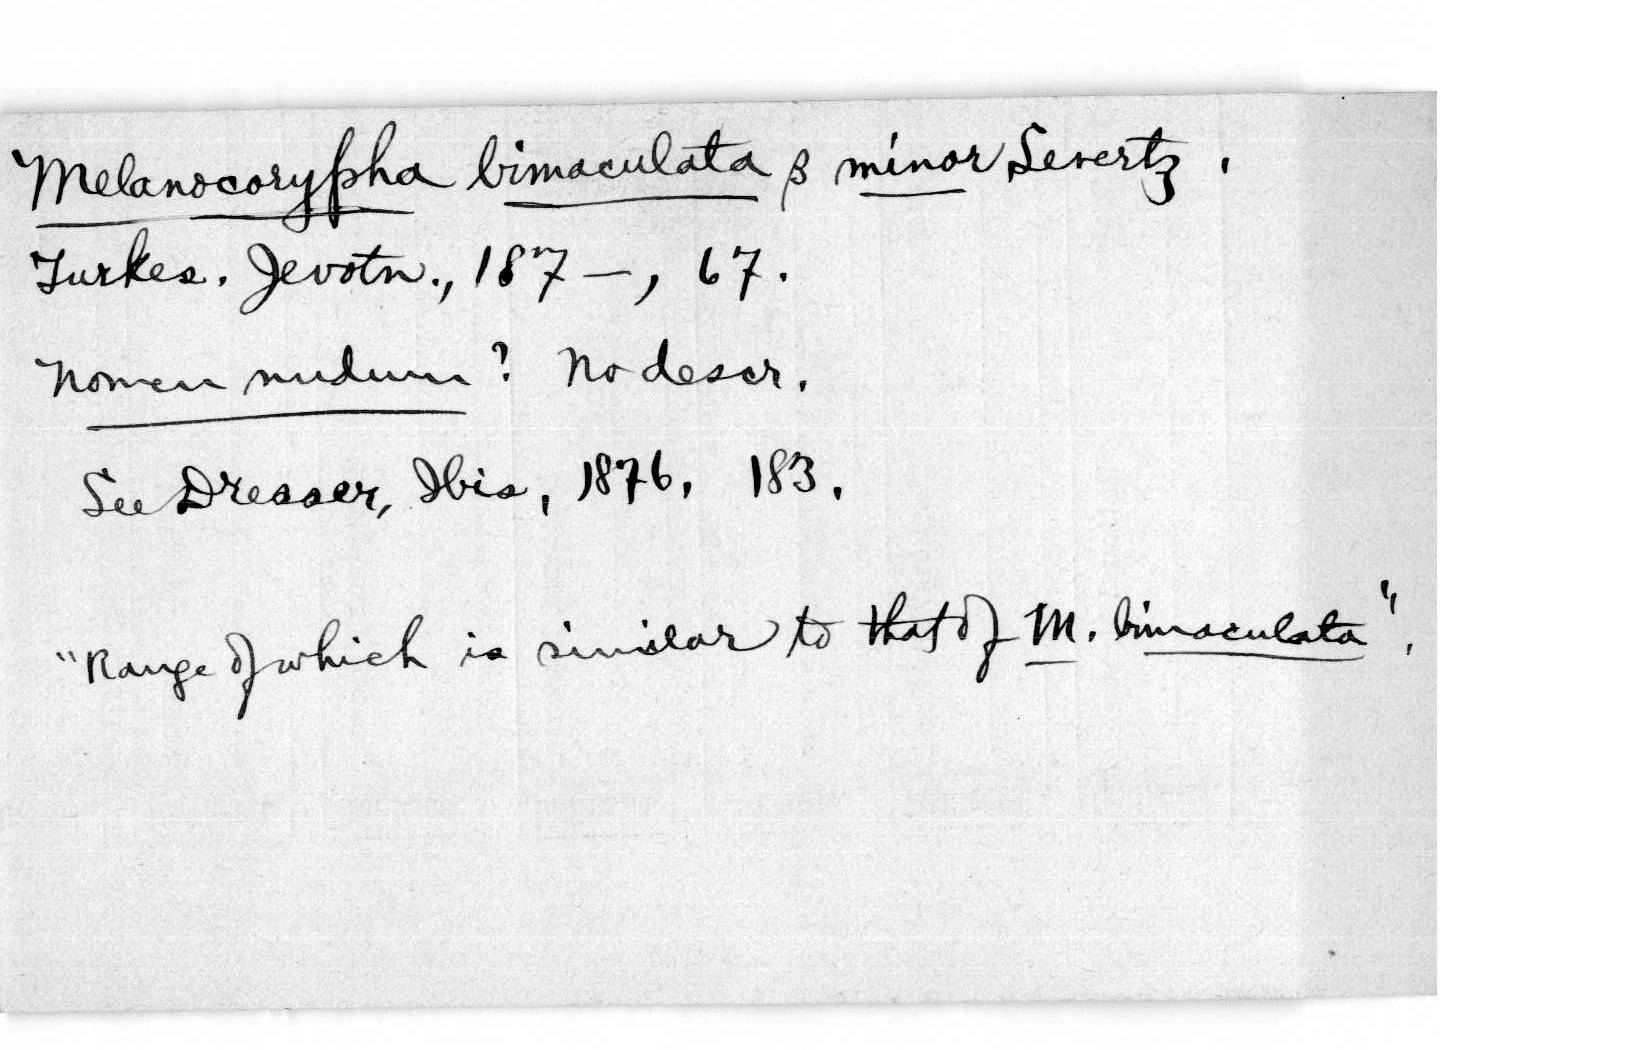 Melanocorypha bimaculata β minor Severtz.
Turkes. Jevotn., 187–, 67.
Nomen nudum? No descr.
See Dresser, Ibis, 1876, 183.
"Range of which is similar to that of M. bimaculata".